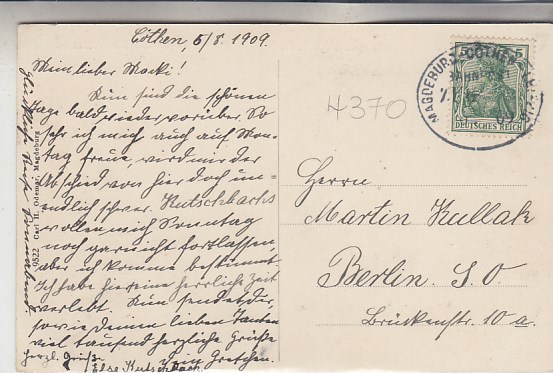 Cöthen, 5/8. 1909.
Mein lieber Macki!
Nun sind die schönen
Tage bald wieder vorüber. So
sehr ich mich auch auf Mon-
tag freue, wird mir der
Abschied von hier doch un-
endlich schwer. Kutschbachs
wollen mich Sonntag
noch garnicht fortlassen,
aber ich komme bestimmt.
Ich habe hier eine herrliche Zeit
verlebt. Nun sendet dir,
sowie deinen lieben Tanten
viel tausend herzliche Grüße
Dein Gretchen.
Herzl. Grüße
Else Kutschbach
9522 Carl H. Odemar, Magdeburg
4370
MAGDEBURG-CÖTHEN-LEIPZIG
BAHNPOST
5
DEUTSCHES REICH
Herrn
Martin Kullak
Berlin. S. O.
Brückenstr. 10 a.